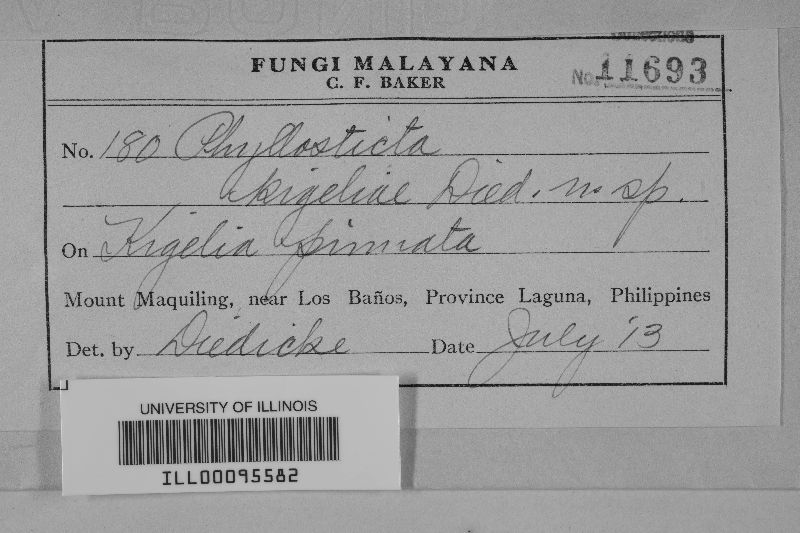 FUNGI MALAYANA
C. F. BAKER
No. 11693
No. 180 Phyllosticta
kigeliae Died. n. sp.
On Kigelia pinnata
Mount Maquiling, near Los Baños, Province Laguna, Philippines
Det. by Diedicke Date July '13
UNIVERSITY OF ILLINOIS
ILL00095582